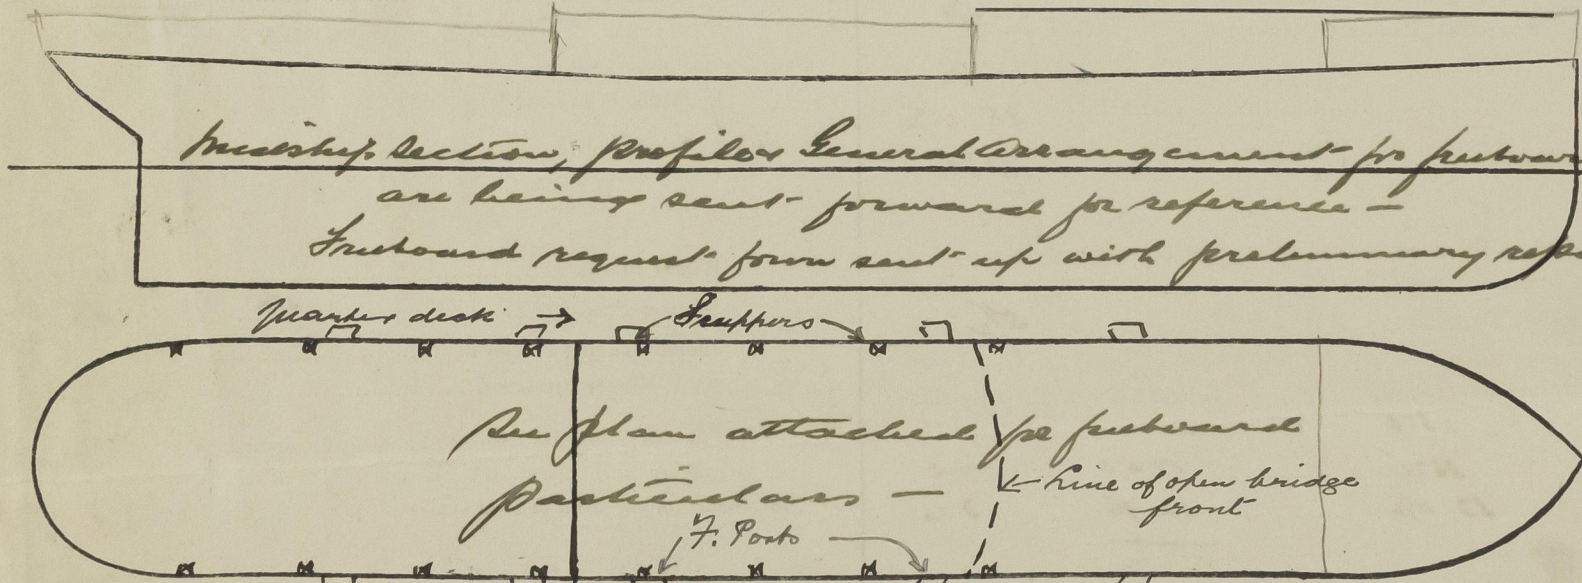 Midship Section, profile & General Arrangement for freeboard
are being sent forward for reference —
Freeboard request form sent up with preliminary
quarter deck →
Scuppers
See plan attached for freeboard
particulars —
Line of open bridge
front
F. Ports